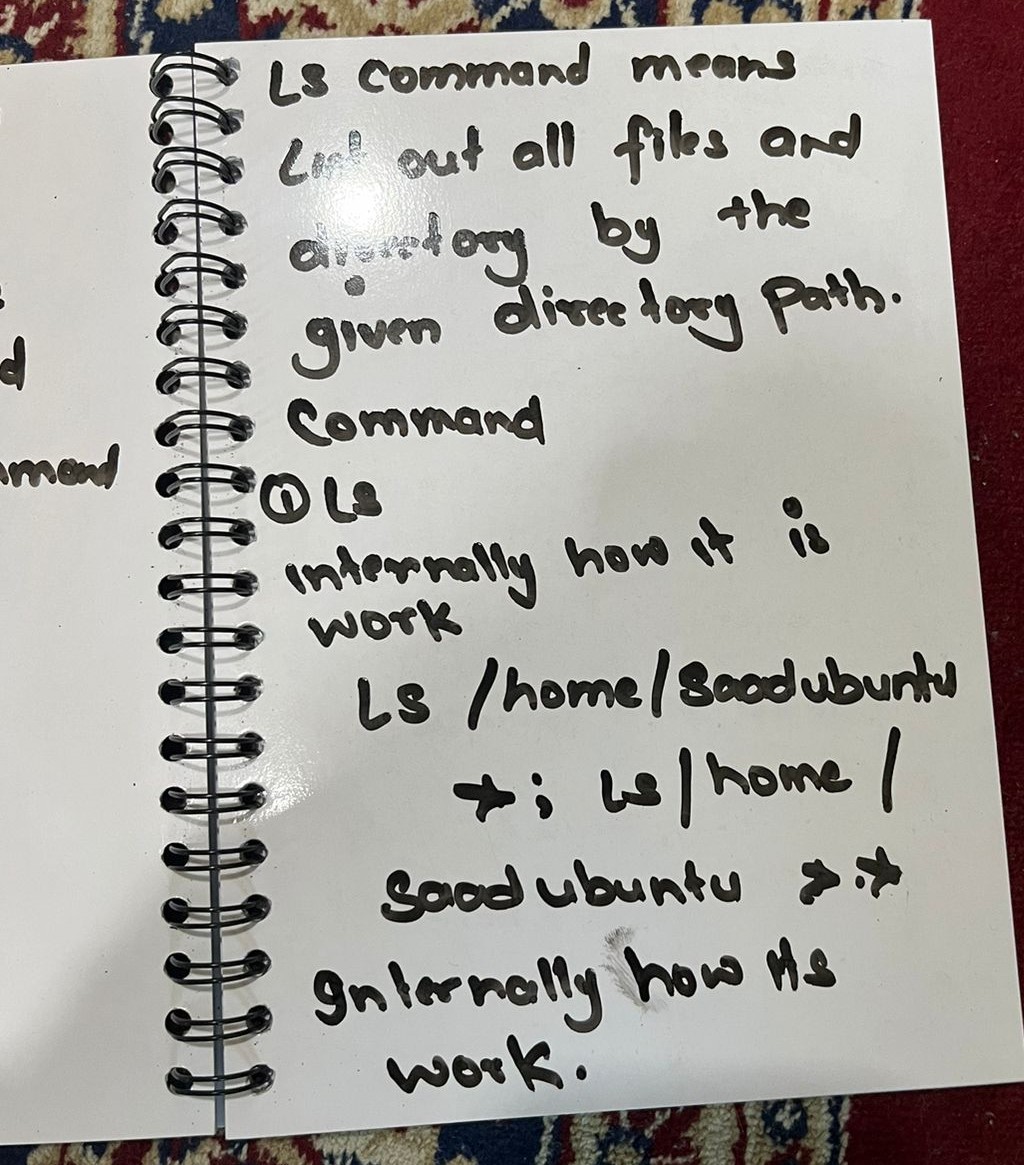 d
mmand
Ls command means
List out all files and
directory by the
given directory path.
Command
① Ls
internally how it is
work
Ls /home/saadubuntu
*; Ls /home/
saadubuntu *.*
Internally how its
work.